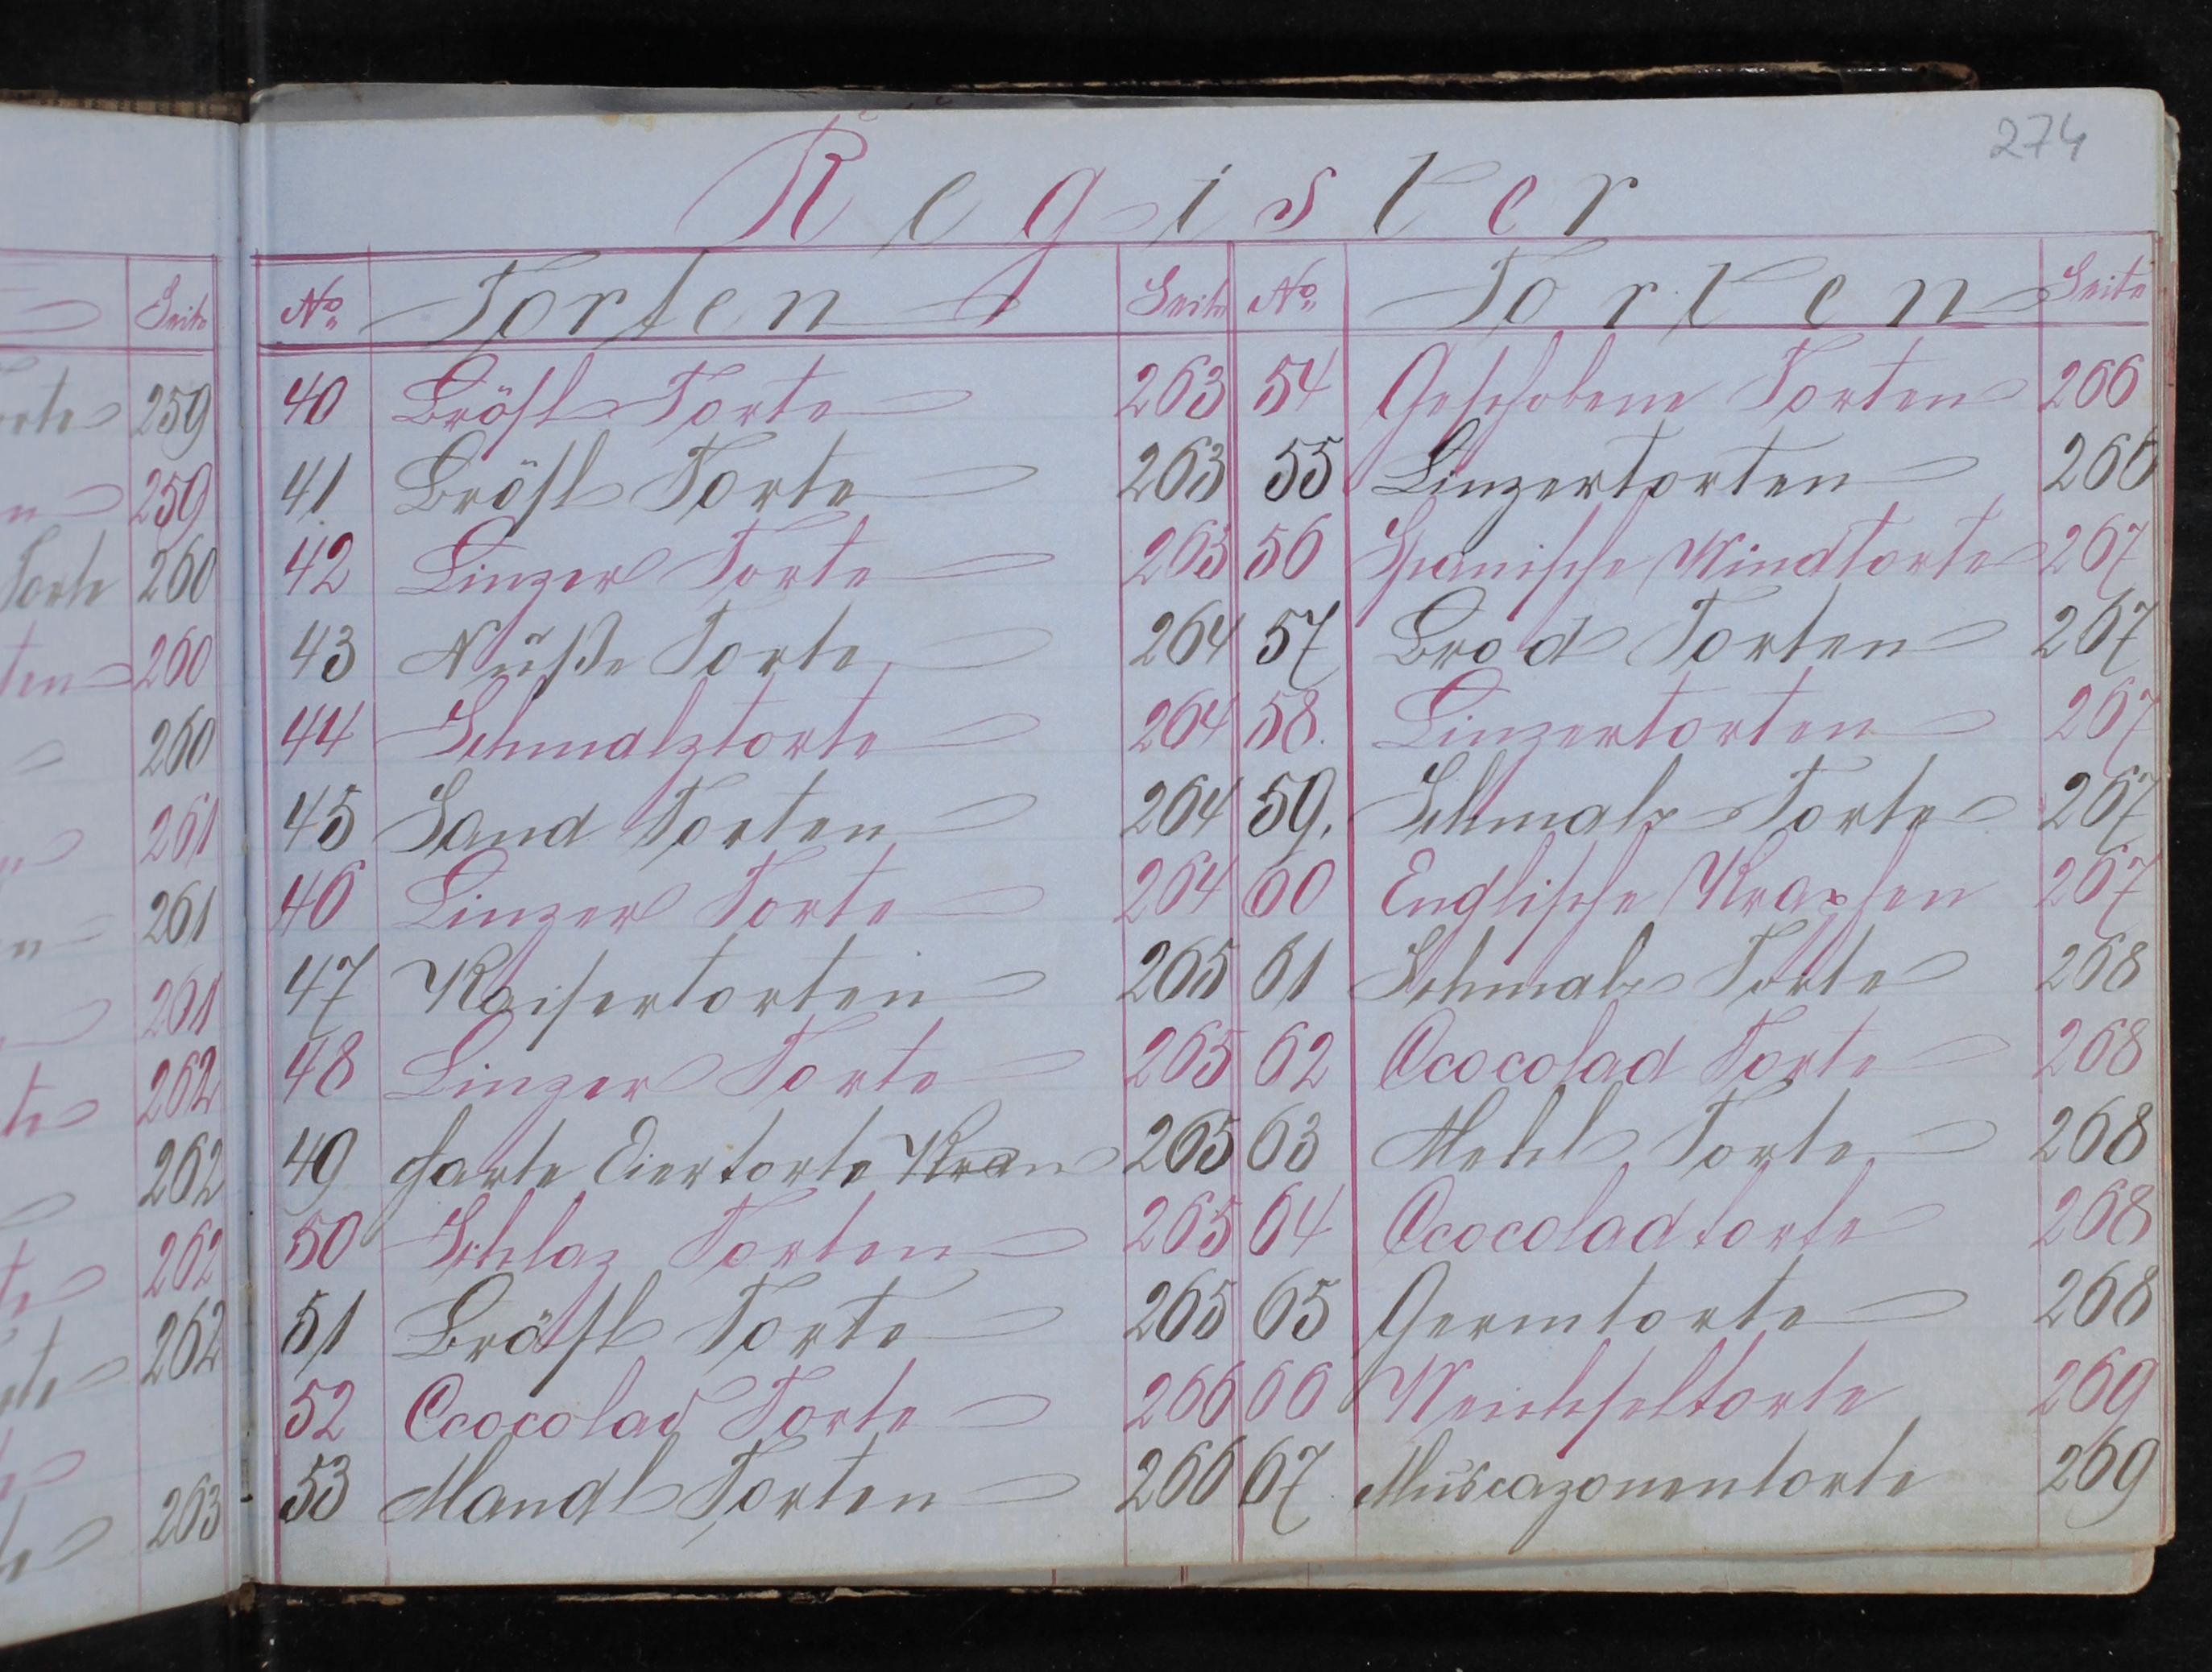 274
Register
No. Torten Seite No. Torten Seite
40 Brösl Torte 263 54 Geschobene Torten 266
41 Brösl Torte 263 55 Linzertorten 266
42 Linzer Torte 263 56 Spanische Windtorte 267
43 Nüße Torte 264 57 Brod Torten 267
44 Schmalztorte 264 58. Linzertorten 267
45 Sand Torten 264 59. Schmalz Torte 267
46 Linzer Torte 264 60 Englische Krapfen 267
47 Kaisertorten 265 61 Schmalz Torte 268
48 Linzer Torte 265 62 Ccocolad Torte 268
49 harte Eiertorte Kran 265 63 Mehl Torte 268
50 Torten 265 64 Ccocoladtorte 268
51 Brösl Torte 265 65 Germtorte 268
52 Ccocolad Torte 266 66 Weichseltorte 269
53 Mandl Torten 266 67. Muscazonentorte 269
Seite
259
259
Torte 260
260
260
261
261
261
262
262
262
262
263